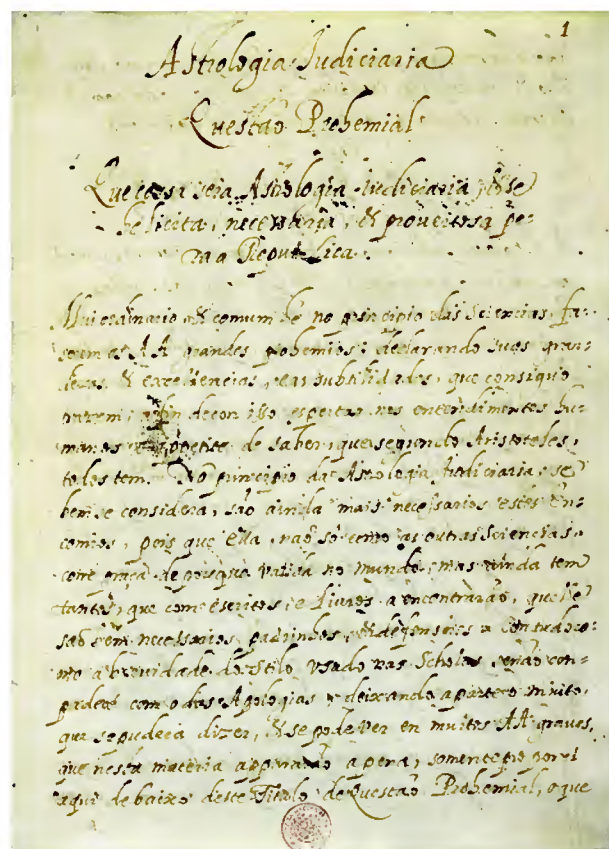 1
Astrologia Judiciaria
Questaõ Prohemial
Que cousa seia Astrologia Judiciaria, & se
he licita, necessaria, & proueitosa pe-
ra a Republica.
Mui ordinario & comum he no principio das Sciencias, fa-
serem os AA grandes prohemios; declarando suas gran-
desas, & excellencias, e as subtilidades, que consiguo
trazem; a fin de com isso espertar nos entendimentos hu-
manos o appetite de saber, que segundo Aristoteles,
todos tem. No principio da Astrologia Judiciaria, se
bem se considera, saõ ainda mais necessarios estes en-
comios, pois que ella, naõ só como as outras Sciencias,
corre praça de pouquo valida no mundo, mas ainda tem
tantos, que com escritos, e Liuros a encontraraõ, que lhe
saõ bem necessarios, padrinhos, & defensores. Contudo co-
mo a breuidade do Estilo vsado nas Scholas senaõ com-
padece com o das Apologias, deixando a parte o muito,
que se pudera dizer, & se pode ver en muitos AA graues,
que nesta materia apperaraõ a pena; somente porei
aqui debaixo deste Titolo de Questaõ Prohemial, o que